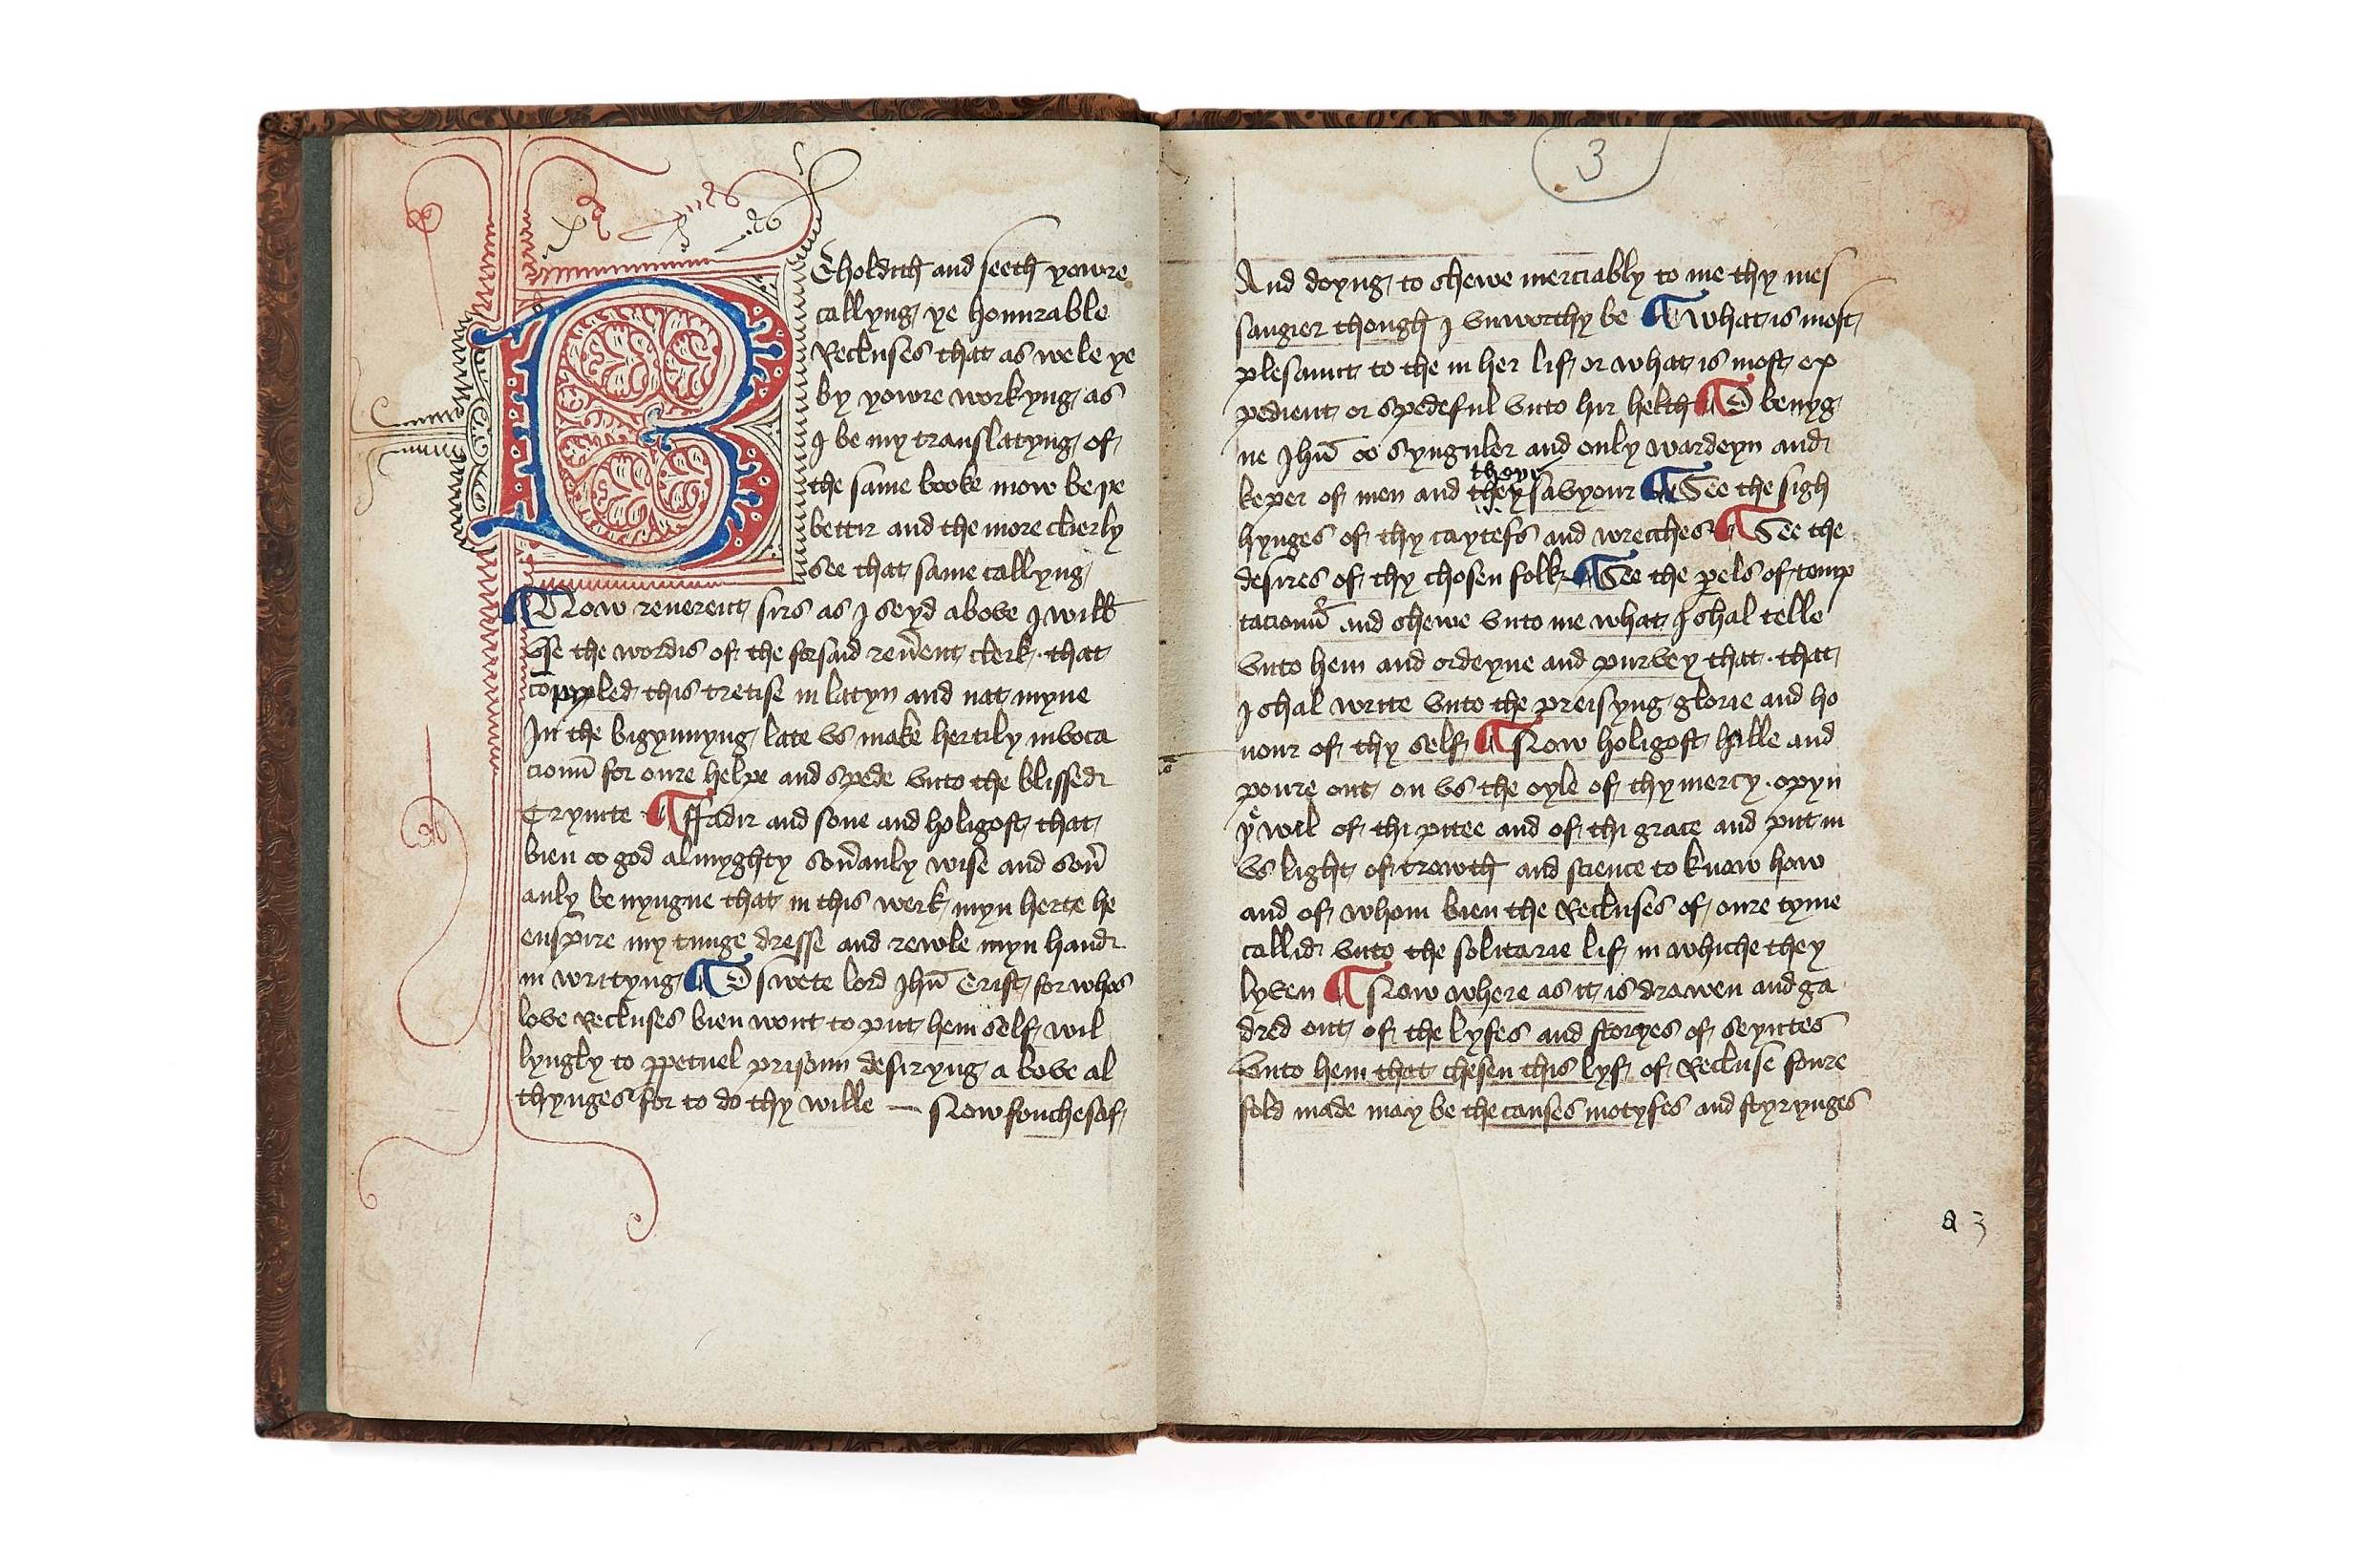 BEholdith and seeth yowre
callyng ye honurable
Recluses that as wele ye
by yowre workyng as
I be my translatyng of
the same booke mow be þe
bettir and the more clierly
see that same callyng
¶ Now reuerent sirs as I seyd above I will
vse the wordis of the forsaid reũent clerk · that
cōpyled this tretise in latyn and nat myne
In the bigynnyng late vs make hertily invoca
cioun̄ for oure helpe and spede vnto the blissed
Trynite ¶ ffadir and sone and holigost that
bien oo god almyghty sou̾anly wise and sou̾
anly benyngne that in this werk myn herte he
enspire my tunge dresse and rewle myn hand
in writyng ¶ O swete lord Ihū Crist for whos
love Recluses bien wont to put hem self wil
lyngly to ꝑpetuel prisoun desiryng a bove al
thynges for to do thy wille — Now fouchesaf
3
And doyng to shewe merciably to me thy mes
sangier though I vnworthy be ¶ What is most
plesaunt to the in her lif or what is most ex
pedient or spedeful vnto hir helth ¶ O benyg
ne Ihū oo synguler and only wardeyn and
theyr
keper of men and they savyour ¶ See the sigh
hynges of thy caytefs and wrecches ¶ See the
desires of thy chosen folk ¶ See the ꝑels of temp
taciouns and shewe vnto me what I shal telle
vnto hem and ordeyne and purvey that · that
I shal write vnto the preisyng glorie and ho
nour of thy self ¶ Now holigost hille and
poure out on vs the oyle of thy mercy · opyn
yͤ wel of thi pitee and of thi grace and put in
vs light of trowth and science to know how
and of whom bien the Recluses of oure tyme
callid vnto the solitarie lif in whiche they
lyven ¶ Now where as it is drawen and ga
dred out of the lyfes and storyes of seyntes
vnto hem that chesen this lyf of Recluse foure
fold made may be the causes motyfes and styrynges
a 3